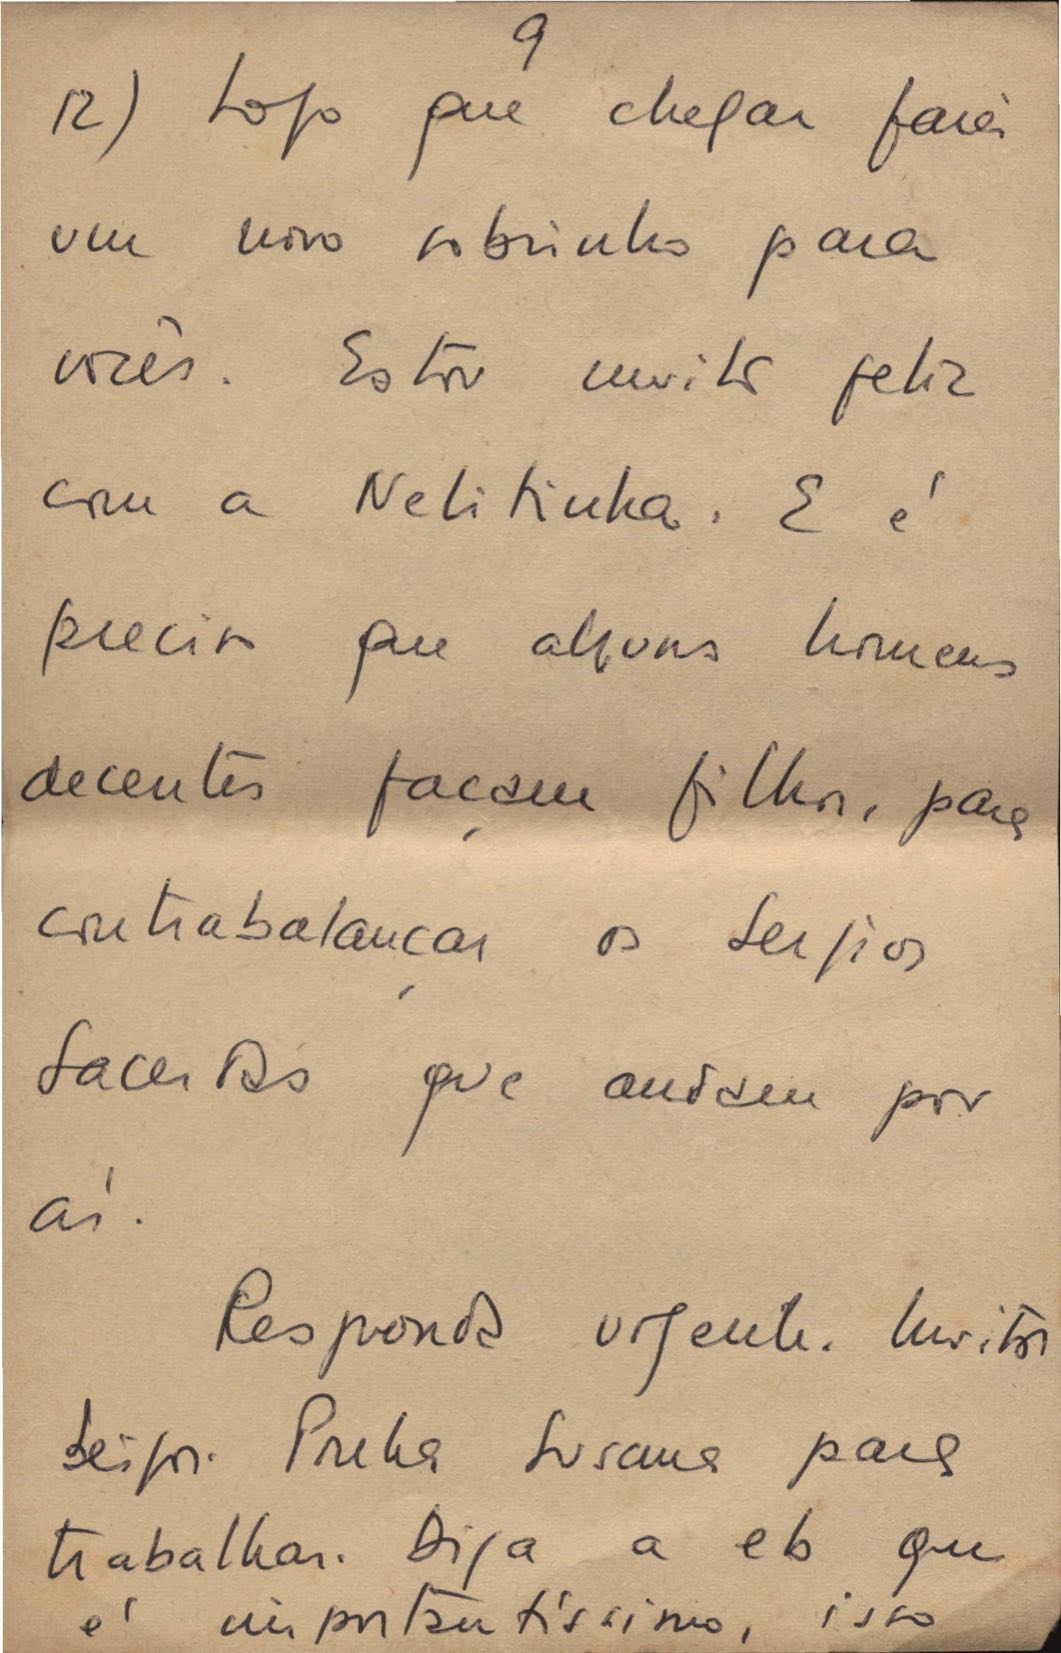 9
12) Logo que chegar farei
um novo sobrinho para
vocês. Estou muito feliz
com a Nelitinha. E é
preciso que alguns homens
decentes façam filhos, para
contrabalançar os Sergios
Lacerdas que andam por
aí.
Responda urgente. Muitos
beijos. Ponha Susana para
trabalhar. Diga a ela que
é importantíssimo, isso